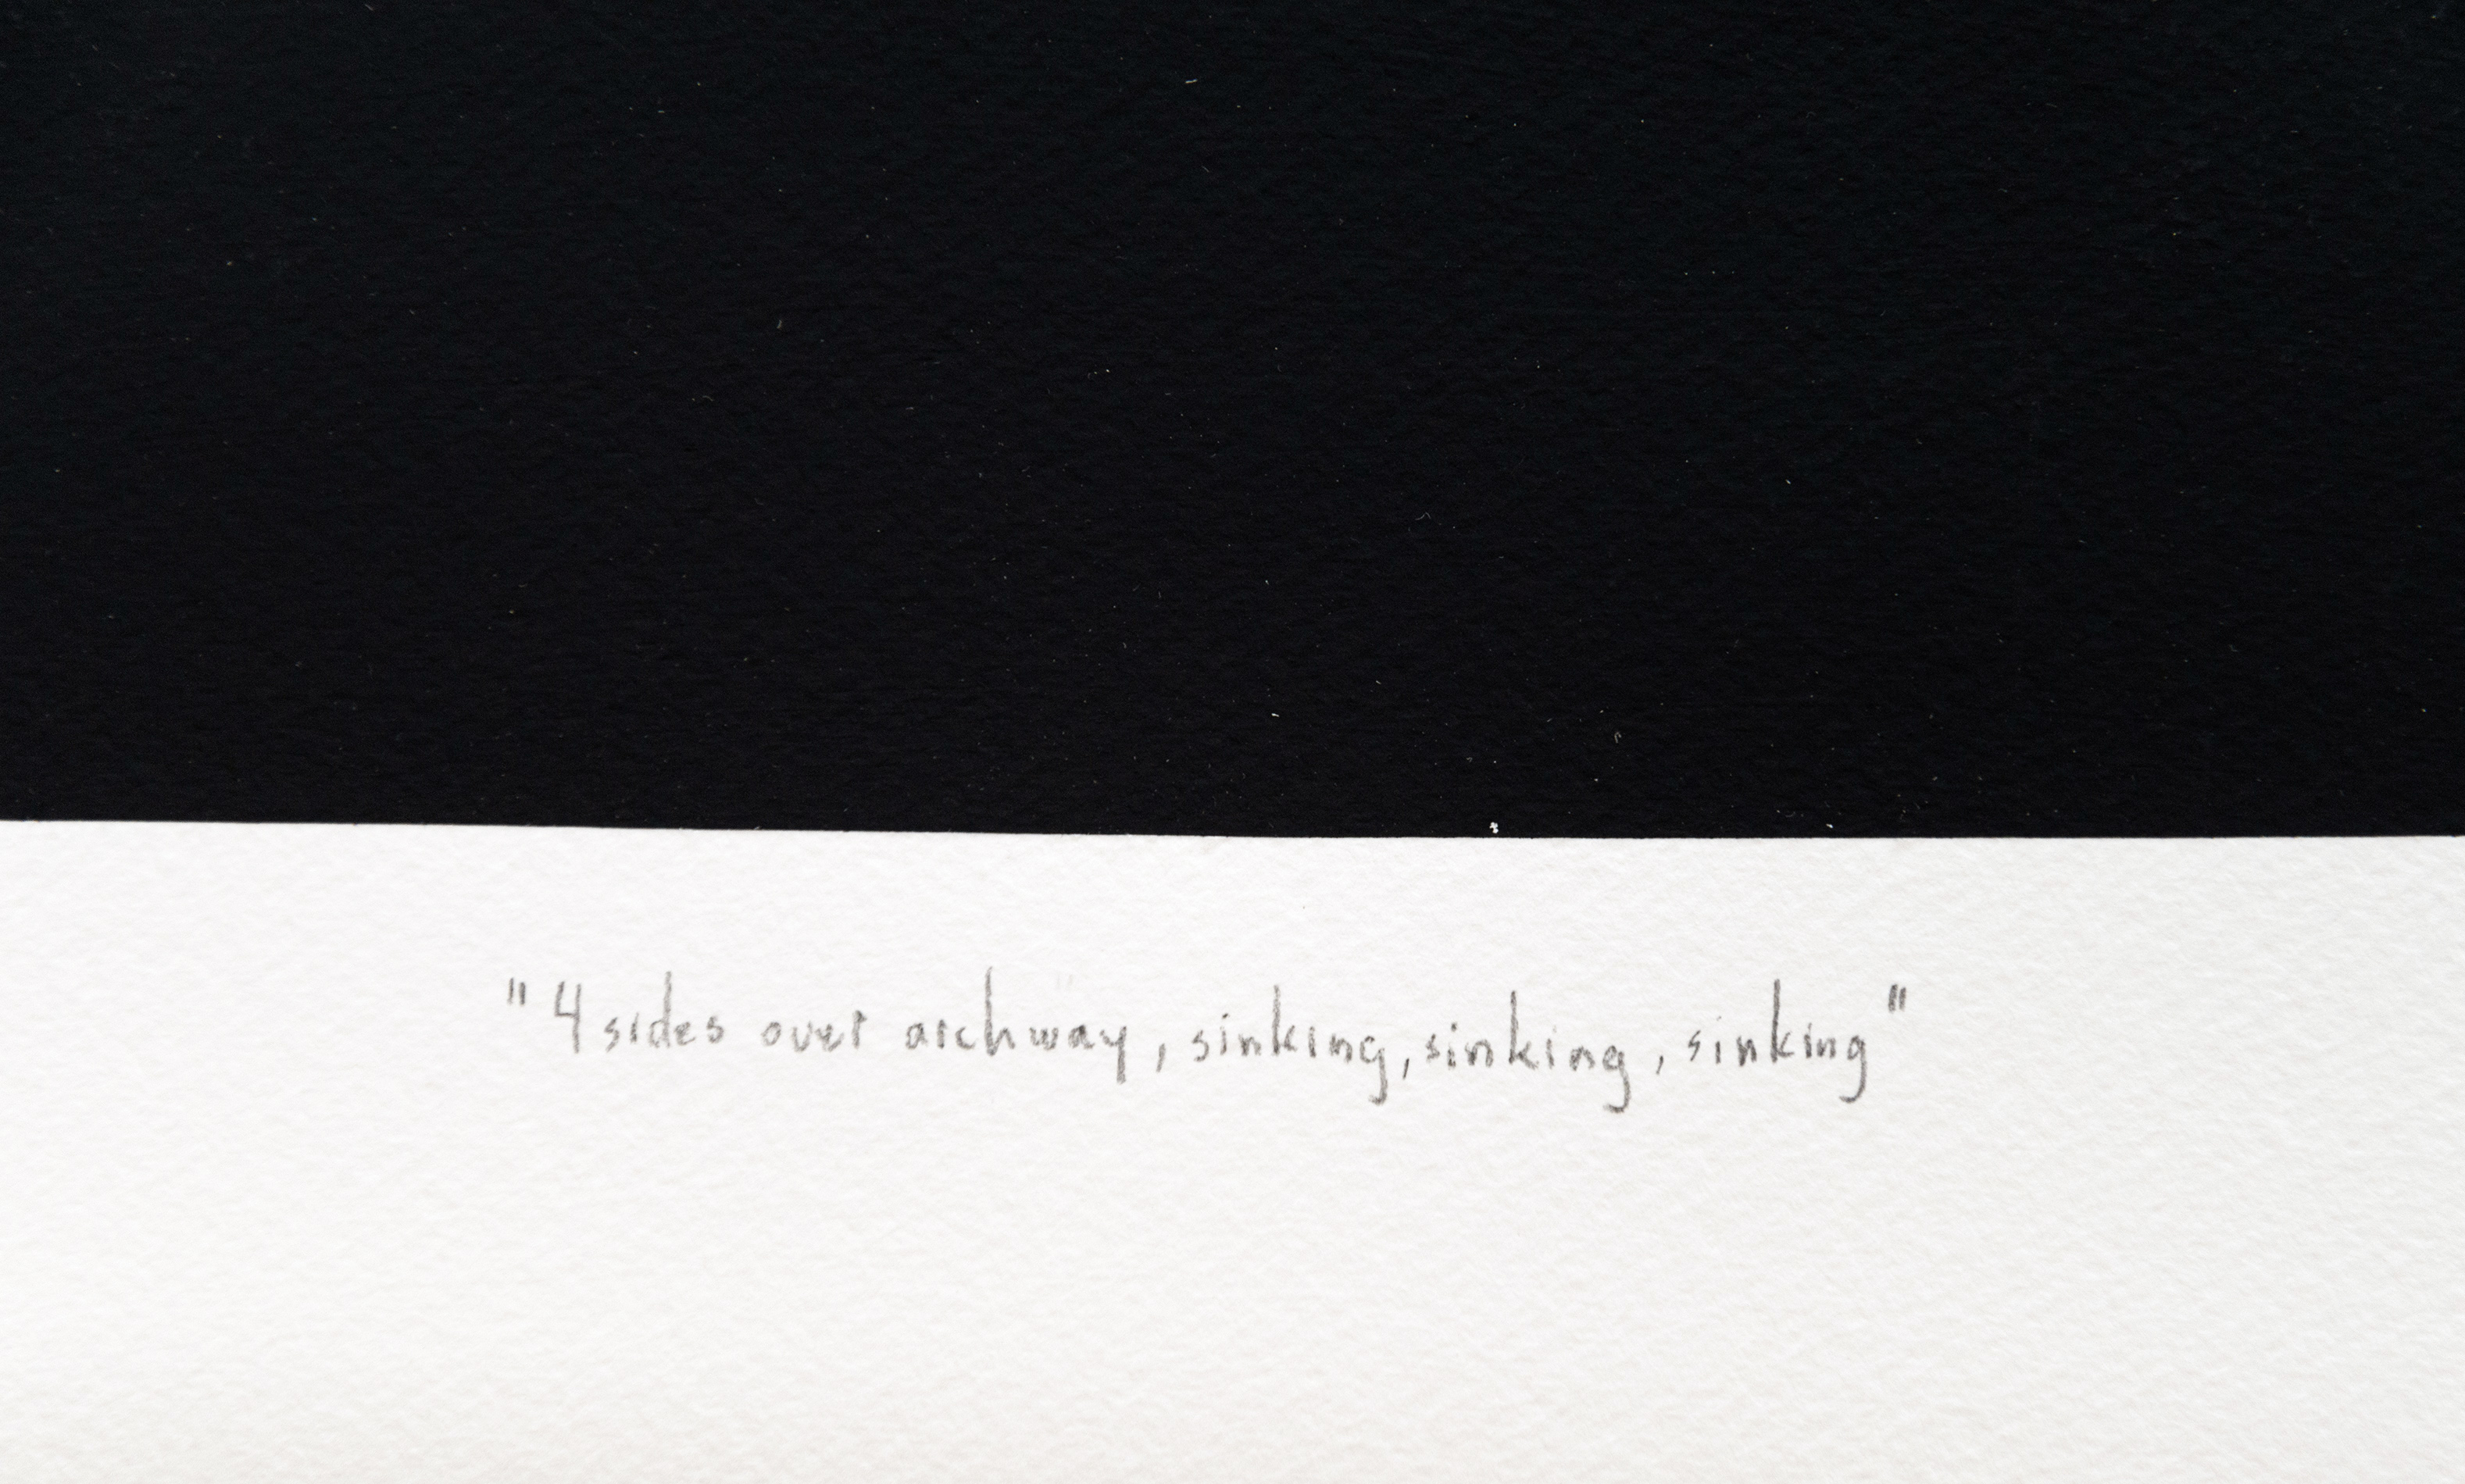 "4 sides over archway, sinking, sinking, sinking"